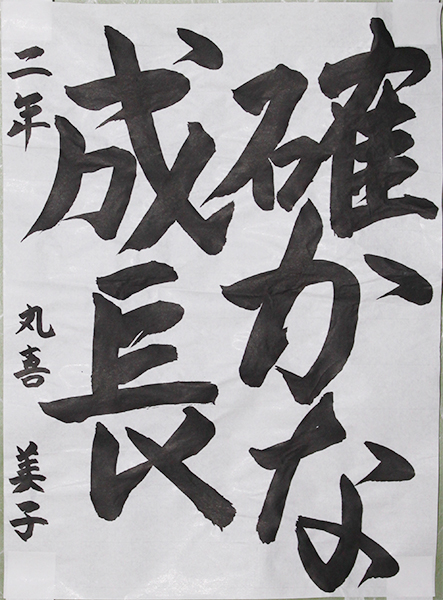 確かな
成長
二年 丸喜 美子